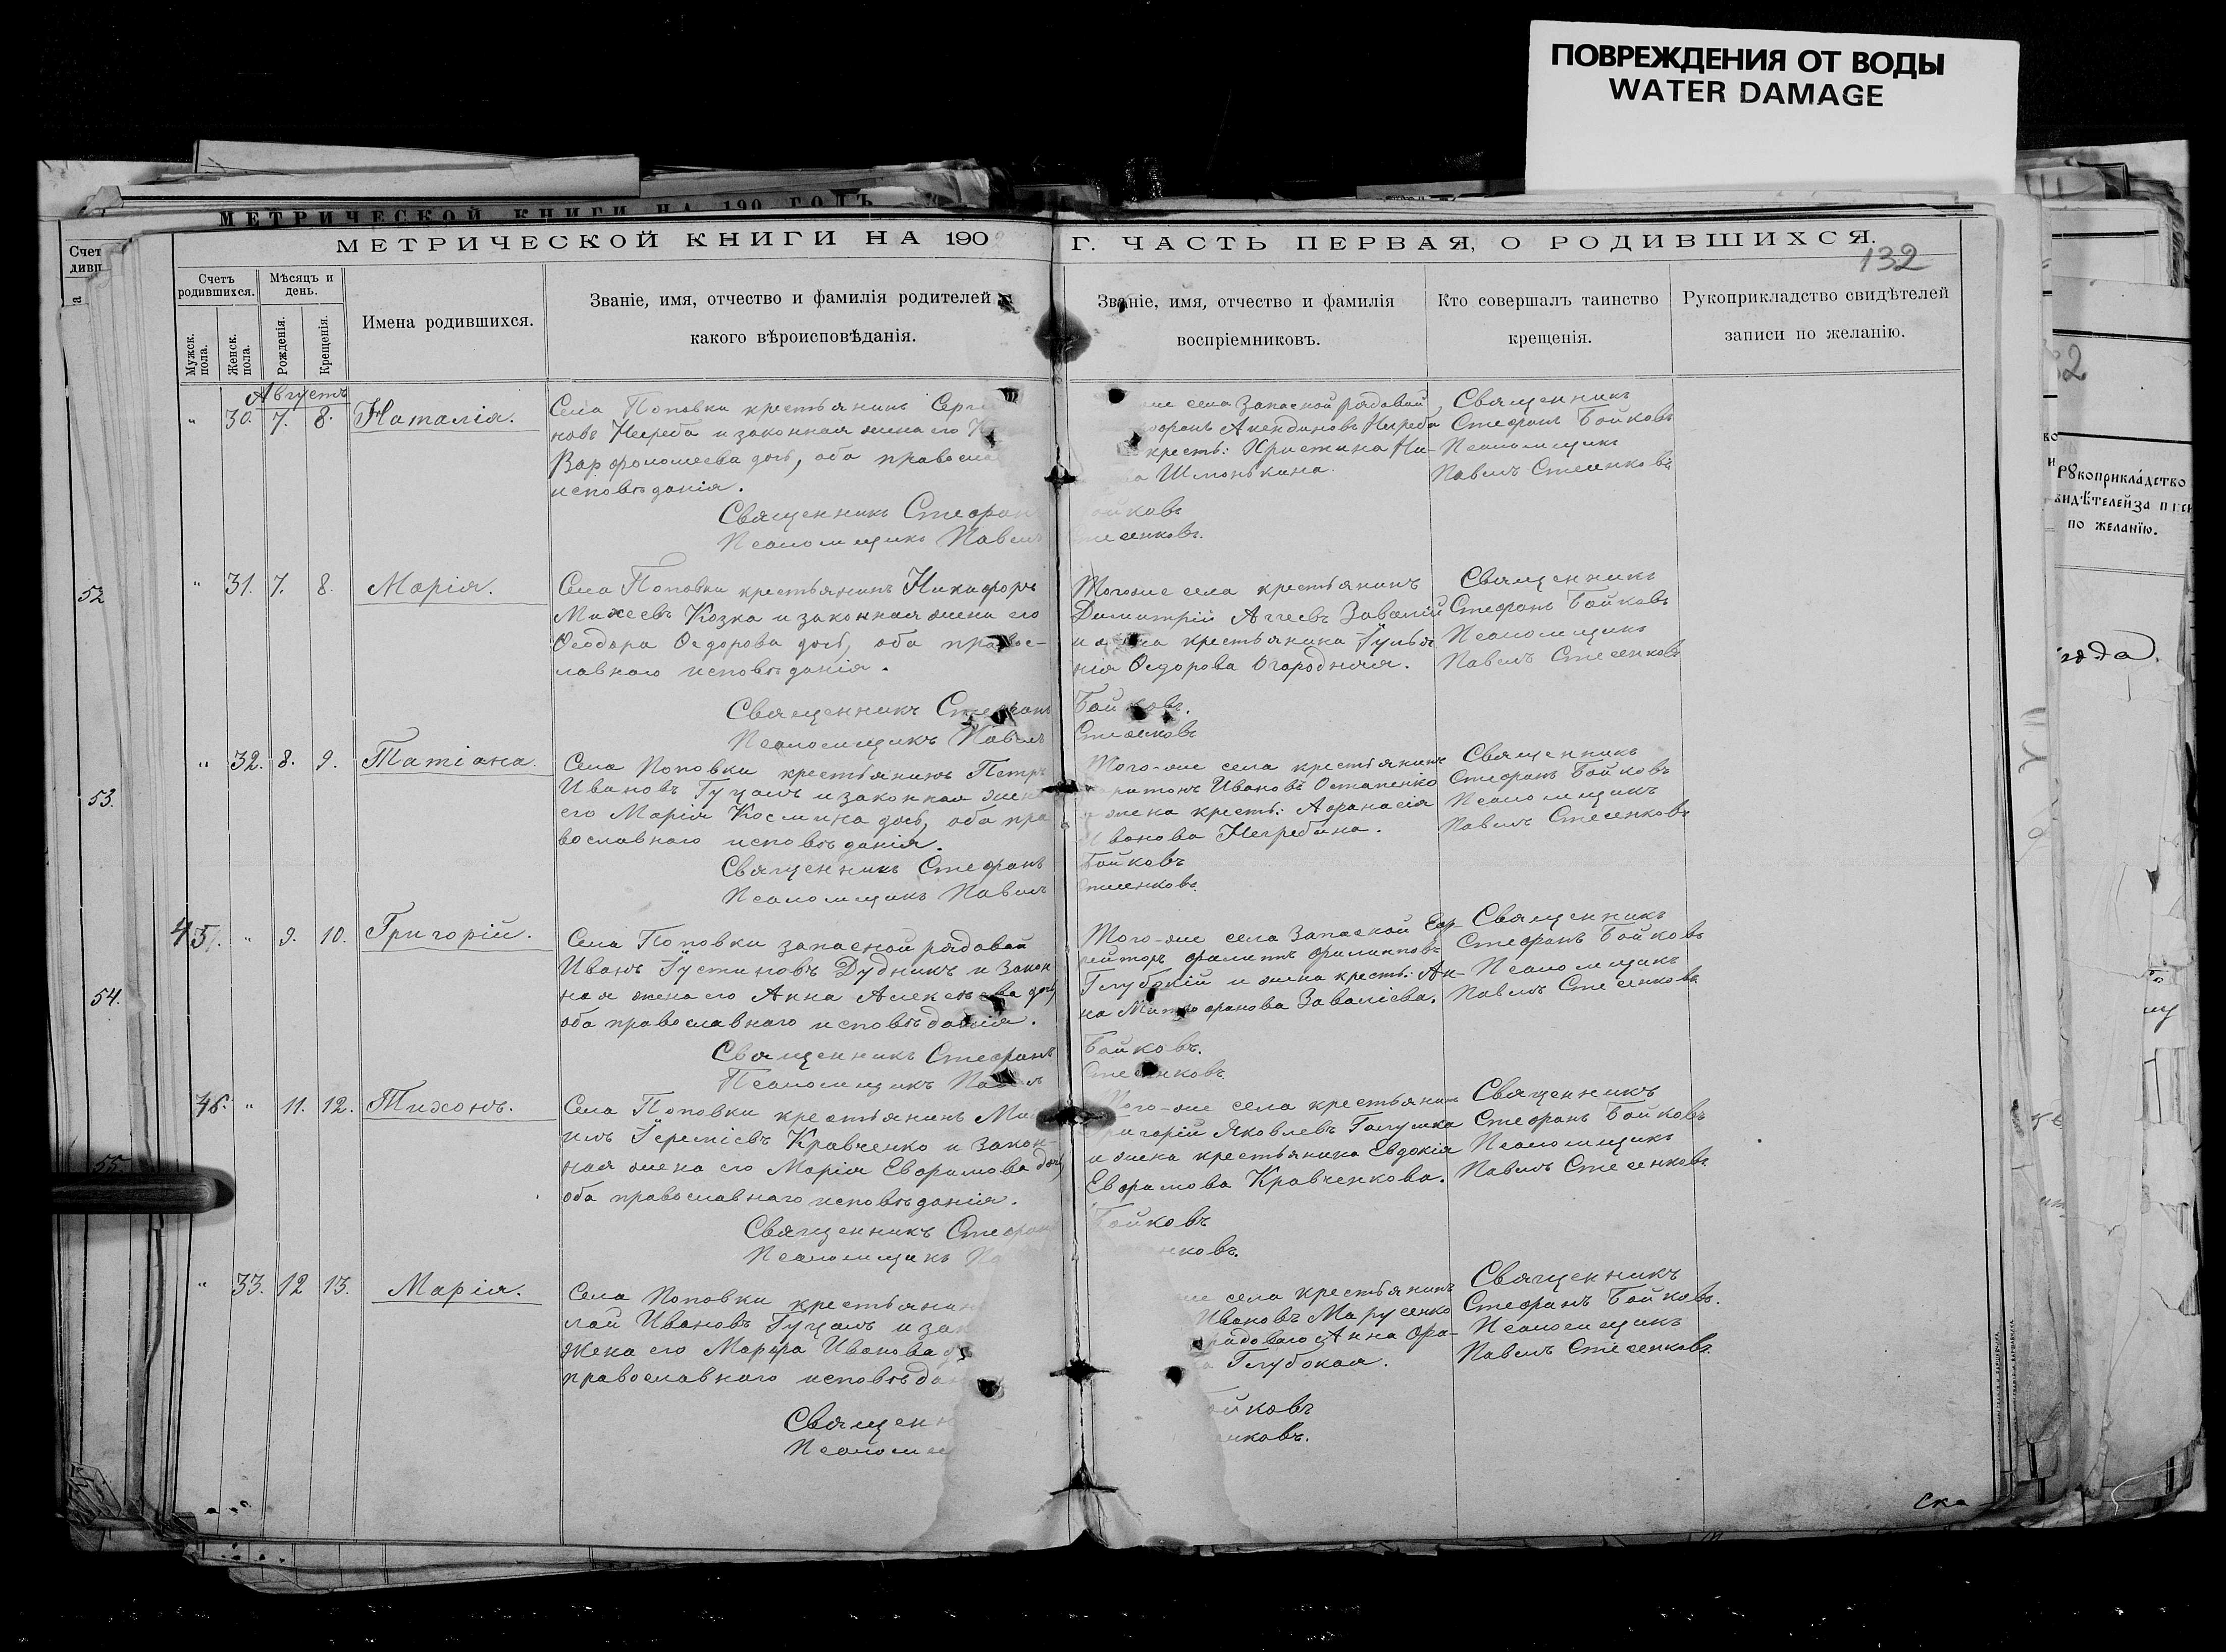 ПОВРЕЖДЕНИЯ ОТ ВОДЫ
WATER DAMAGE
МЕТРИЧЕСКОЙ КНИГИ НА 190 ГОДЪ
МЕТРИЧЕСКОЙ КНИГИ НА 1902 Г. ЧАСТЬ ПЕРВАЯ, О РОДИВШИХСЯ.
132
Счетъ родившихся.
Мужск. пола.
Женск. пола.
Мѣсяцъ и день.
Рожденія.
Крещенія.
Имена родившихся.
Званіе, имя, отчество и фамилія родителей
какого вѣроисповѣданія.
Званіе, имя, отчество и фамилія
воспріемниковъ.
Кто совершалъ таинство
крещенія.
Рукоприкладство свидѣтелей
записи по желанію.
Августъ
" 30. 7. 8. Наталія.
Села Поповки крестьянинъ
новъ Негреба и законная жена его
Варфоломеева дочь, оба
исповѣданія.
Священникъ Стефанъ
Псаломщикъ Павелъ
села запасной рядовой
Акендиновъ Негреба
крест: Христина Ни-
Шмонькина.
Бойковъ
Стесенковъ.
Священникъ
Стефанъ Бойковъ
Псаломщикъ
Павелъ Стесенковъ
" 31. 7. 8. Марія.
Села Поповки крестьянинъ Никифоръ
Михеевъ Козка и законная жена его
Ѳеодора Ѳедорова дочь, оба правос-
лавнаго исповѣданія.
Священникъ Стефанъ
Псаломщикъ Павелъ
Тогоже села крестьянинъ
Димитрій Аггеевъ Завалій
и жена крестьянина Іулья
нія Ѳедорова Огородняя.
Бойковъ.
Стесенковъ
Священникъ
Стефанъ Бойковъ
Псаломщикъ
Павелъ Стесенковъ
" 32. 8. 9. Татіана.
Села Поповки крестьянинъ Петръ
Ивановъ Гуцалъ и законная жена
его Марія Космина дочь, оба пра
вославнаго исповѣданія.
Священникъ Стефанъ
Псаломщикъ Павелъ
Того-же села крестьянинъ
Ивановъ Остапенко
и жена крестъ: Афанасія
Иванова Негребина.
Бойковъ
Стесенковъ.
Священникъ
Стефанъ Бойковъ
Псаломщикъ
Павелъ Стесенковъ
45. " 9. 10. Григорій.
Села Поповки запасной рядовой
Иванъ Іустиновъ Дудникъ и закон-
ная жена его Анна Алексѣева дочь,
оба православнаго исповѣданія.
Священникъ Стефанъ
Псаломщикъ Павелъ
Того-же села запасной Еф-
рейторъ Филиппъ Филипповъ
Глубокій и жена крестъ: Ан-
на Митрофанова Завалієва.
Бойковъ.
Стесенковъ.
Священникъ
Стефанъ Бойковъ
Псаломщикъ
Павелъ Стесенковъ
46. " 11. 12. Тихонъ.
Села Поповки крестьянинъ
Іереміевъ Кравченко и закон-
ная жена его Марія Евфимова дочь,
оба православнаго исповѣданія.
Священникъ Стефанъ
Псаломщикъ
Того-же села крестьянинъ
Григорій Яковлевъ Галушка
и жена крестьянина Евдокія
Евфимова Кравченкова.
Бойковъ
Священникъ
Стефанъ Бойковъ
Псаломщикъ
Павелъ Стесенковъ
" 33. 12 13. Марія.
Села Поповки крестьянинъ
лай Ивановъ Гуцалъ и
жена его Марфа Иванова
православнаго
села крестьянинъ
Ивановъ Марусенко
рядоваго Анна
Глубокая.
Священникъ
Стефанъ Бойковъ.
Псаломщикъ
Павелъ Стесенковъ.
52
53.
54.
55.
Рукоприкла́дство
по жела́нію.
года.